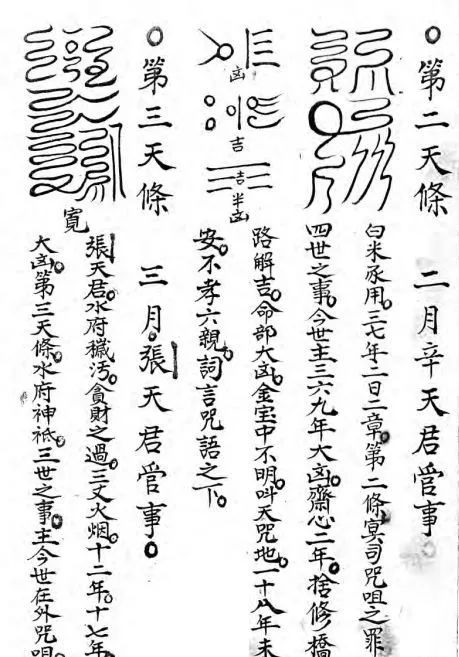 ○第二天條 二月辛天君管事○
白米承用。三七年二日二章。第二條冥司咒咀之罪
四世之事。今世主三六九年大凶。齋心二年。捨修橋
路解吉。命部大凶。金宝中不明。叫天咒地。一十八年未
安。不孝六親。詞言咒語之下。
凶
吉
吉半凶
○第三天條 三月。張天君管事○
寬
張天君。水府穢污。貪財之過。三丈火烟。十二年。十七年。
大凶。第三天條。水府神祗。三世之事。主今世在外咒咀。